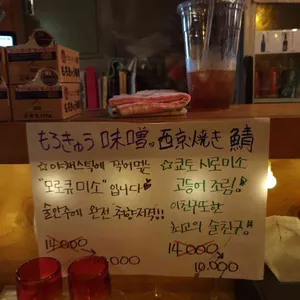 もろきゅう 味噌。
西京焼き 鯖
☆야채스틱에 찍어먹는
"모로큐미소" 입니다
술안주에 완전 취향저격!!
14.000
☆쿄토 시로미소
고등어 조림!
이친구또한
최고의 술친구!!
14.000
10.000